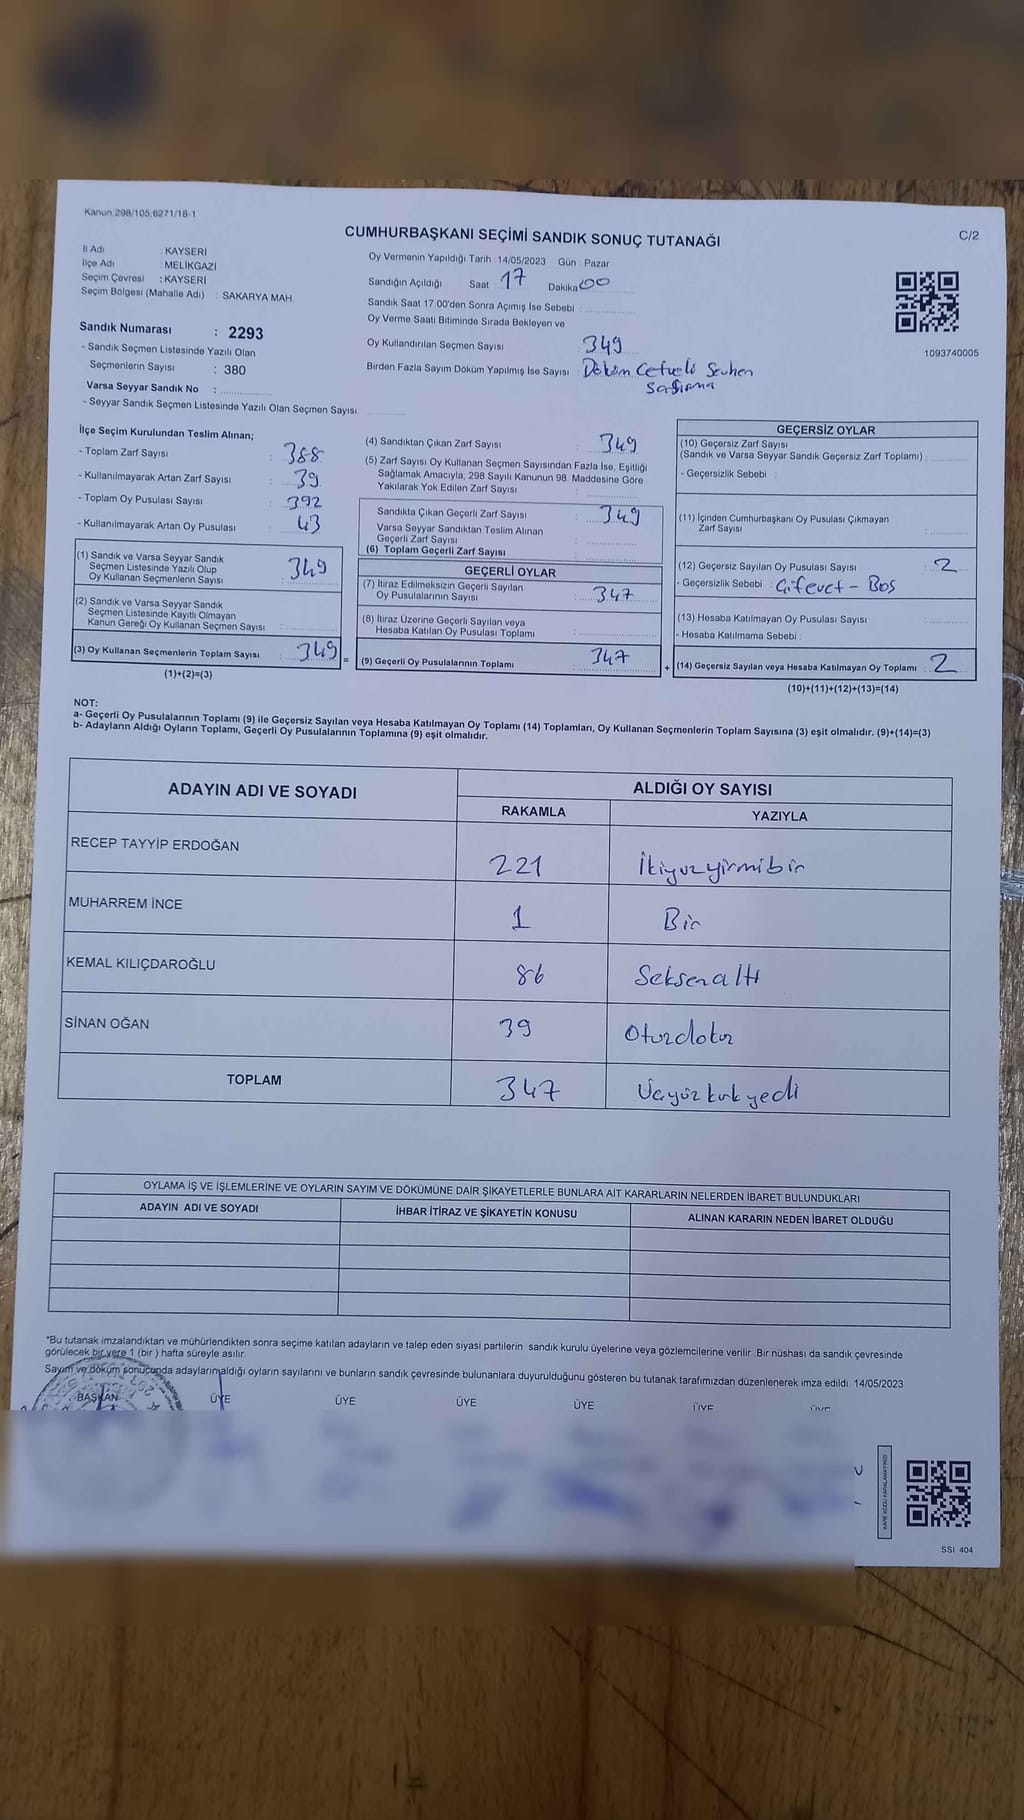 Kanun 298/105,6271/18-1
CUMHURBAŞKANI SEÇİMİ SANDIK SONUÇ TUTANAĞI
C/2
İl Adı : KAYSERİ
İlçe Adı : MELİKGAZİ
Seçim Çevresi : KAYSERİ
Seçim Bölgesi (Mahalle Adı) : SAKARYA MAH.
Oy Vermenin Yapıldığı Tarih 14/05/2023 Gün : Pazar
Sandığın Açıldığı Saat : 17 Dakika 00
Sandık Saat 17.00'den Sonra Açılmış İse Sebebi :
Oy Verme Saati Bitiminde Sırada Bekleyen ve
Oy Kullandırılan Seçmen Sayısı 349
Birden Fazla Sayım Döküm Yapılmış İse Sayısı : Döküm Cetveli Sevhen
1093740005
Sandık Numarası : 2293
- Sandık Seçmen Listesinde Yazılı Olan
Seçmenlerin Sayısı : 380
Varsa Seyyar Sandık No :
- Seyyar Sandık Seçmen Listesinde Yazılı Olan Seçmen Sayısı
İlçe Seçim Kurulundan Teslim Alınan;
- Toplam Zarf Sayısı : 388
- Kullanılmayarak Artan Zarf Sayısı : 39
- Toplam Oy Pusulası Sayısı : 392
- Kullanılmayarak Artan Oy Pusulası : 43
(1) Sandık ve Varsa Seyyar Sandık
Seçmen Listesinde Yazılı Olup
Oy Kullanan Seçmenlerin Sayısı : 349
(2) Sandık ve Varsa Seyyar Sandık
Seçmen Listesinde Kayıtlı Olmayan
Kanun Gereği Oy Kullanan Seçmen Sayısı :
(3) Oy Kullanan Seçmenlerin Toplam Sayısı : 349 =
(1)+(2)=(3)
(4) Sandıktan Çıkan Zarf Sayısı : 349
(5) Zarf Sayısı Oy Kullanan Seçmen Sayısından Fazla İse, Eşitliği
Sağlamak Amacıyla, 298 Sayılı Kanunun 98. Maddesine Göre
Yakılarak Yok Edilen Zarf Sayısı :
Sandıkta Çıkan Geçerli Zarf Sayısı : 349
Varsa Seyyar Sandıktan Teslim Alınan
Geçerli Zarf Sayısı :
(6) Toplam Geçerli Zarf Sayısı
GEÇERLİ OYLAR
(7) İtiraz Edilmeksizin Geçerli Sayılan
Oy Pusulalarının Sayısı : 347
(8) İtiraz Üzerine Geçerli Sayılan veya
Hesaba Katılan Oy Pusulası Toplamı :
(9) Geçerli Oy Pusulalarının Toplamı : 347 +
GEÇERSİZ OYLAR
(10) Geçersiz Zarf Sayısı
(Sandık ve Varsa Seyyar Sandık Geçersiz Zarf Toplamı) :
- Geçersizlik Sebebi :
(11) İçinden Cumhurbaşkanı Oy Pusulası Çıkmayan
Zarf Sayısı :
(12) Geçersiz Sayılan Oy Pusulası Sayısı : 2
- Geçersizlik Sebebi : Çiftevet - Boş
(13) Hesaba Katılmayan Oy Pusulası Sayısı :
- Hesaba Katılmama Sebebi :
(14) Geçersiz Sayılan veya Hesaba Katılmayan Oy Toplamı : 2
(10)+(11)+(12)+(13)=(14)
NOT:
a- Geçerli Oy Pusulalarının Toplamı (9) ile Geçersiz Sayılan veya Hesaba Katılmayan Oy Toplamı (14) Toplamları, Oy Kullanan Seçmenlerin Toplam Sayısına (3) eşit olmalıdır. (9)+(14)=(3)
b- Adayların Aldığı Oyların Toplamı, Geçerli Oy Pusulalarının Toplamına (9) eşit olmalıdır.
ADAYIN ADI VE SOYADI ALDIĞI OY SAYISI
RAKAMLA YAZIYLA
RECEP TAYYİP ERDOĞAN 221 İkiyüzyirmibir
MUHARREM İNCE 1 Bir
KEMAL KILIÇDAROĞLU 86 Seksenaltı
SİNAN OĞAN 39 Otuzdokuz
TOPLAM 347 Üçyüz kırk yedi
OYLAMA İŞ VE İŞLEMLERİNE VE OYLARIN SAYIM VE DÖKÜMÜNE DAİR ŞİKAYETLERLE BUNLARA AİT KARARLARIN NELERDEN İBARET BULUNDUKLARI
ADAYIN ADI VE SOYADI İHBAR İTİRAZ VE ŞİKAYETİN KONUSU ALINAN KARARIN NEDEN İBARET OLDUĞU
*Bu tutanak imzalandıktan ve mühürlendikten sonra seçime katılan adayların ve talep eden siyasi partilerin sandık kurulu üyelerine veya gözlemcilerine verilir. Bir nüshası da sandık çevresinde
görülecek bir yere 1 (bir ) hafta süreyle asılır.
Sayım ve döküm sonucunda adayların aldığı oyların sayılarını ve bunların sandık çevresinde bulunanlara duyurulduğunu gösteren bu tutanak tarafımızdan düzenlenerek imza edildi. 14/05/2023
BAŞKAN ÜYE ÜYE ÜYE ÜYE ÜYE ÜYE
KARE KODU KARALAMAYINIZ!
SSI 404